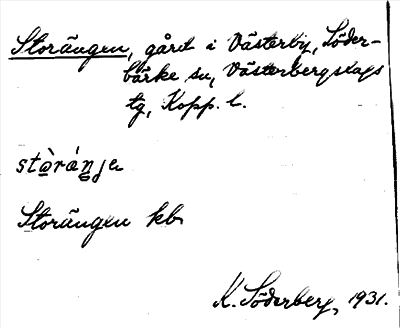 Storängen, gård i Västerby, Söder-
bärke sn, Västerbergslags
tg, Kopp. l.
stòránje
Storängen kb
K. Söderberg, 1931.